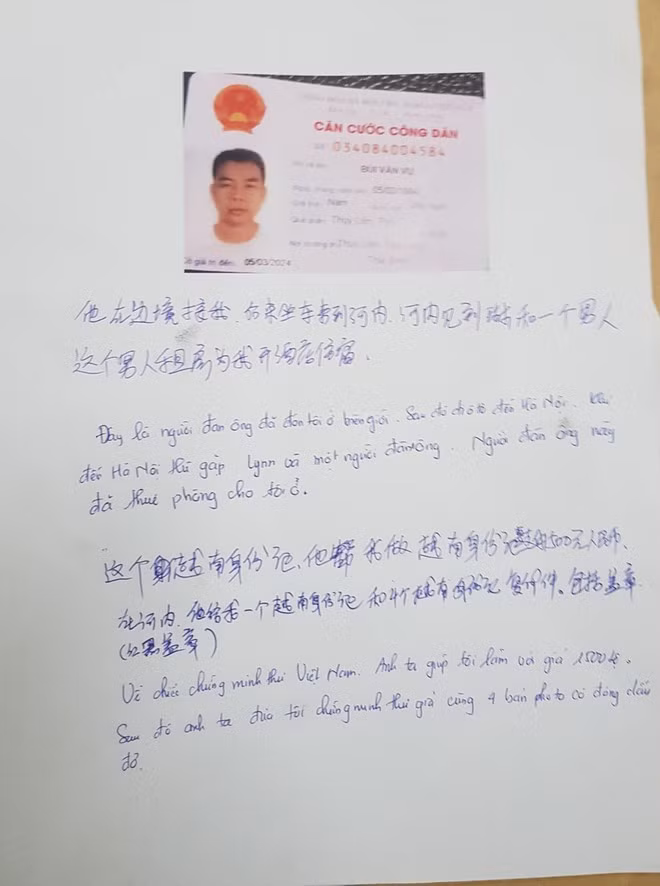 CĂN CƯỚC CÔNG DÂN
034084004584
BÙI VĂN VU
Nam
05/03/2024
他在边境接我. 后来坐车来到河内. 河内见到 和一个男人
这个男人租房为我开酒店住宿.
Đây là người đàn ông đã đón tôi ở biên giới. Sau đó đi ô tô đến Hà Nội. Khi
đến Hà Nội thì gặp Lynn và một người đàn ông. Người đàn ông này
đã thuê phòng cho tôi ở.
这个 越南身份证, 他帮我做越南身份证 1500元人民币.
在河内. 他给我一个越南身份证和4个越南身份证复印件. 包括盖章
(红 盖章)
Về chiếc chứng minh thư Việt Nam. Anh ta giúp tôi làm với giá 1500 tệ.
Sau đó anh ta đưa tôi chứng minh thư giả cùng 4 bản photo có đóng dấu
đỏ.